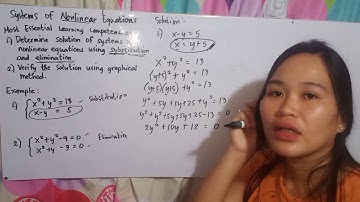 Systems of Nonlinear Equations
Most Essential Learning Competencies
1) Determine Solution of Systems of
nonlinear equations using Substitution
and elimination.
2) Verify the Solution using graphical
method.
Example:
1) x² + y² = 13 - Substitution
x - y = 5
2) x² + y² - 9 = 0 - Elimination
x² + y - 3 = 0 -
Solution:
1) x - y = 5
x = y + 5
x² + y² = 13
(y+5)² + y² = 13
(y+5)(y+5) + y² = 13
y² + 5y + 5y + 25 + y² = 13
y² + y² + 5y + 5y + 25 - 13 = 0
2y² + 10y + 12 = 0